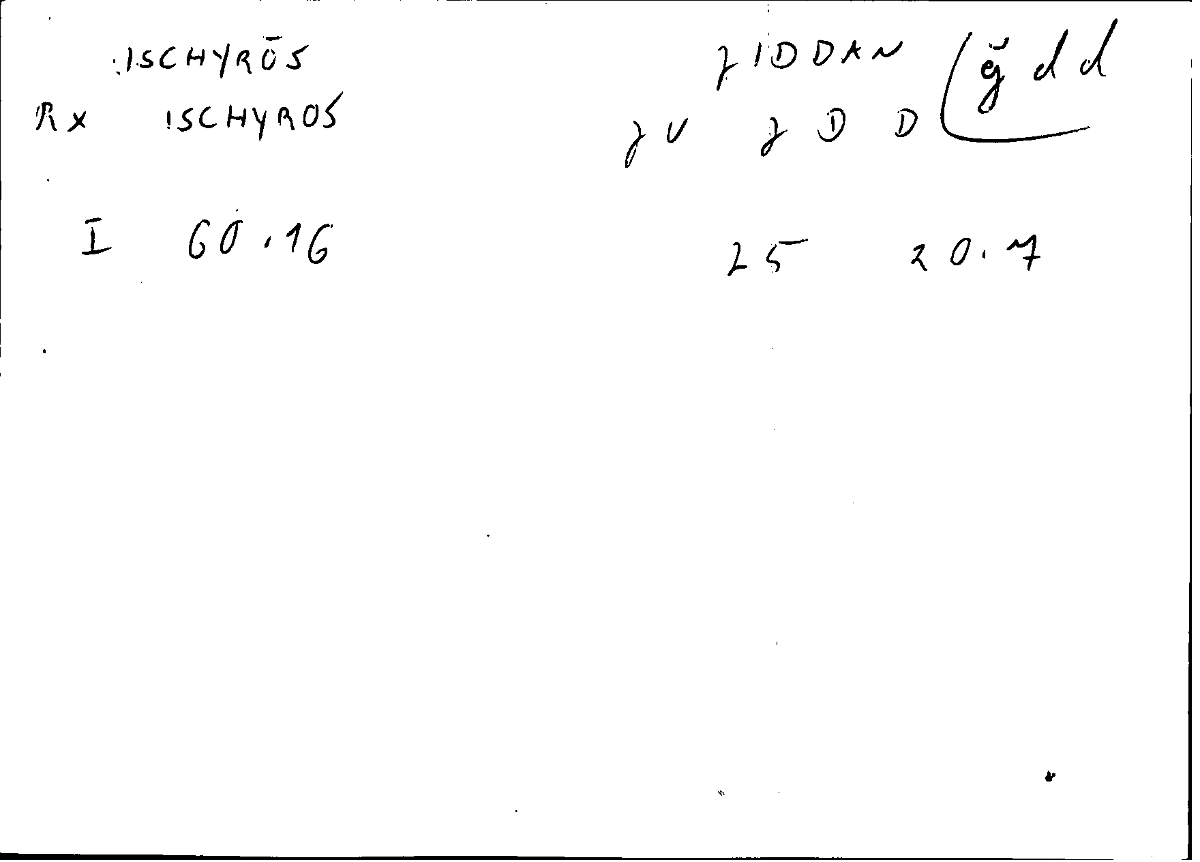 ISCHYRŌS JIDDAN (ǧdd
Rx ISCHYROS JU J D D
I 60.16 25 20.7